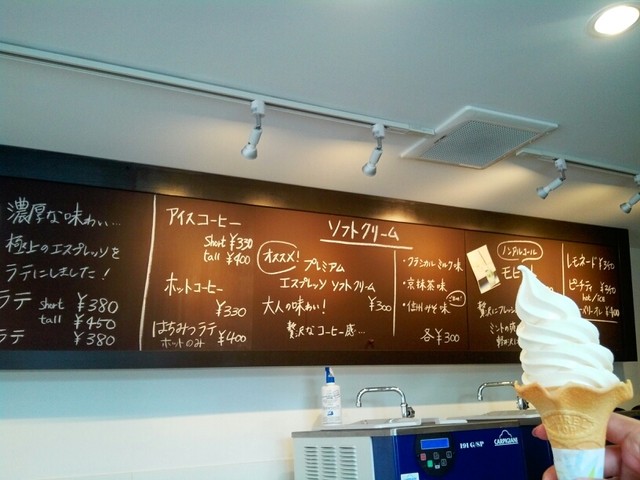 濃厚な味わい…
極上のエスプレッソを
ラテにしました!
ラテ short ¥380
tall ¥450
ラテ ¥380
アイスコーヒー
short ¥330
tall ¥400
ホットコーヒー
¥330
はちみつラテ
ホットのみ ¥400
ソフトクリーム
オススメ! プレミアム
エスプレッソ ソフトクリーム
大人の味わい! ¥300
贅沢なコーヒー感…
・クラシカルミルク味
・京抹茶味
各¥300
ノンアルコール
モヒ
贅沢にフレッシュ
ミントの
レモネード
ピーチティ
hot/ice
¥400
191 G/SP
CARPIGIANI